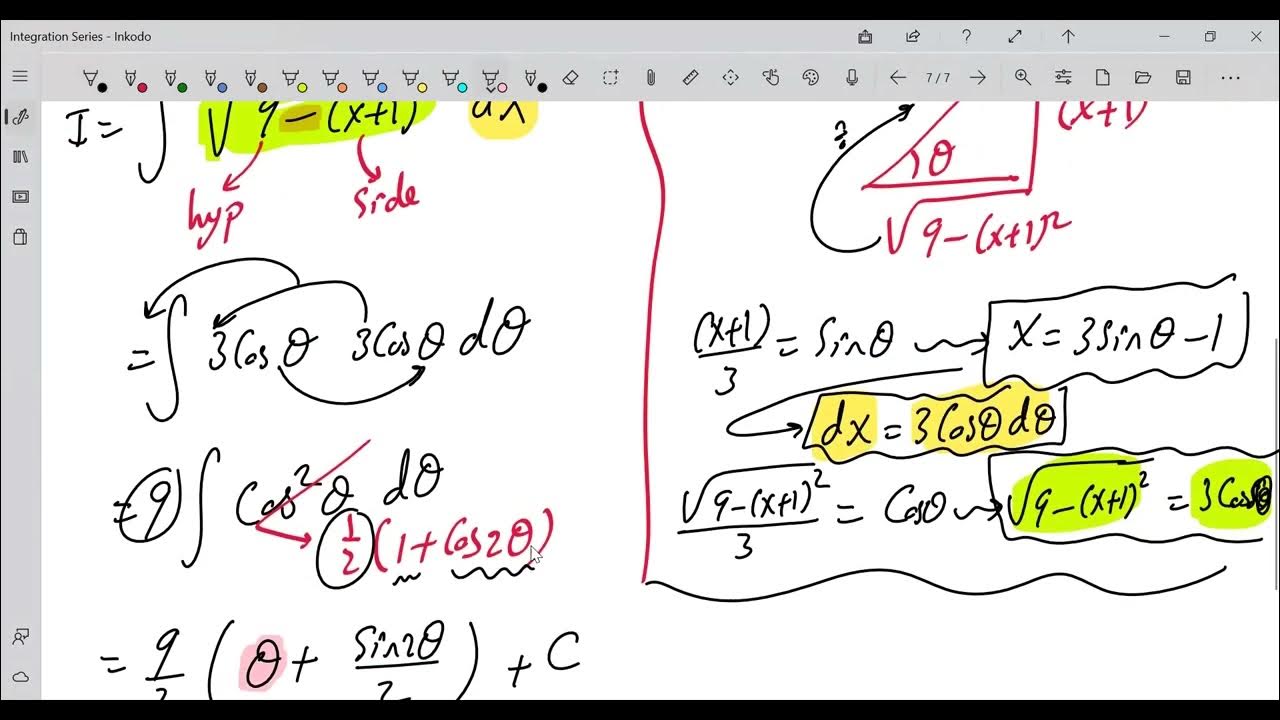 Integration Series - Inkodo
7 / 7
I = ∫ √9 - (x+1) dx
hyp side
= ∫ 3Cosθ 3Cosθ dθ
= 9 ∫ Cos²θ dθ
1/2 (1 + Cos2θ)
= 9/2 (θ + Sin2θ/2) + C
(x+1)
θ
√9-(x+1)²
(x+1)/3 = Sinθ x = 3Sinθ - 1
dx = 3Cosθ dθ
√9-(x+1)²/3 = Cosθ √9-(x+1)² = 3Cosθ